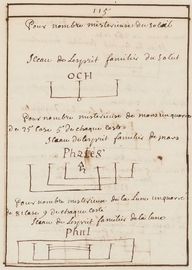 115
Pour nombre misterieuse du soleil
Sceau de Lesprit familier du Soleil
OCH
Pour nombre misterieuse de mars inquarre
de 25 Case 5 de chaque Costé
Sceau de Lesprit familier de mars
Phaleg
Pour nombre misterieuse de la Lune inquarré
de 81 Case 9 de chaque Coste
Sceau de Lesprit familier de la lune
Phul